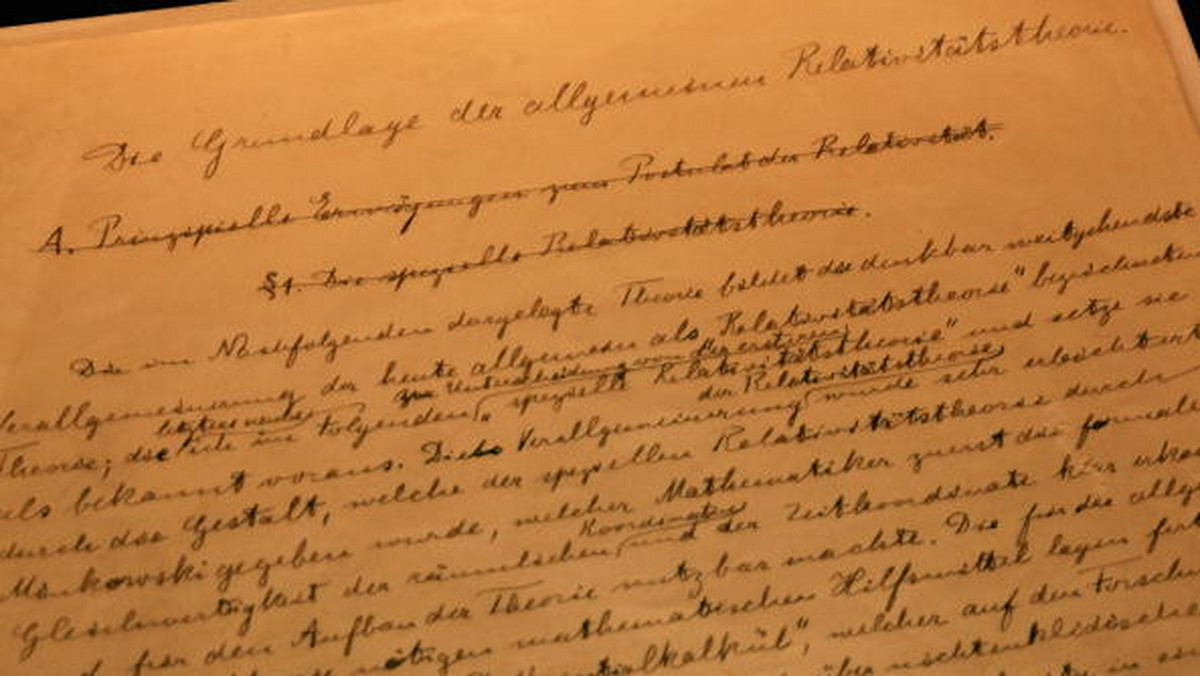 Die Grundlage der allgemeinen Relativitätstheorie.
A. Prinzipielle Erwägungen zum Postulat der Relativität.
§1. Die spezielle Relativitätstheorie.
Die im Nachfolgenden dargelegte Theorie bildet die denkbar weitgehendste
Verallgemeinerung der heute allgemein als "Relativitätstheorie" bezeichneten
zur Unterscheidung von der ersteren
Theorie; die ich im Folgenden "spezielle Relativitätstheorie" und setze sie
letztere nenne
der Relativitätstheorie
als bekannt voraus. Diese Verallgemeinerung wurde sehr erleichtert
durch die Gestalt, welche der speziellen Relativitätstheorie durch
Minkowski gegeben wurde, welcher Mathematiker zuerst die formale
Koordinaten
Gleichwertigkeit der räumlichen und der Zeitkoordinate klar erkan
für den Aufbau der Theorie nutzbar machte. Die für die allge
nötigen mathematischen Hilfsmittel lagen fer
ialkalkül", welcher auf den Forschu
über nichteuklidische